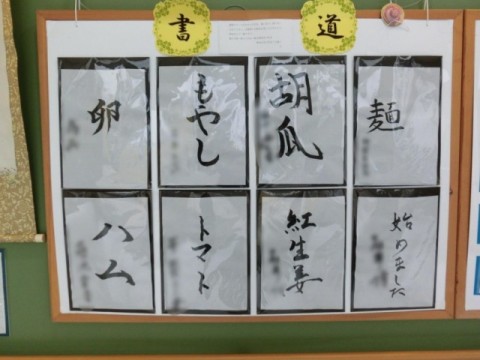 書道
麺
胡瓜
もやし
卵
始めました
紅生姜
トマト
ハム